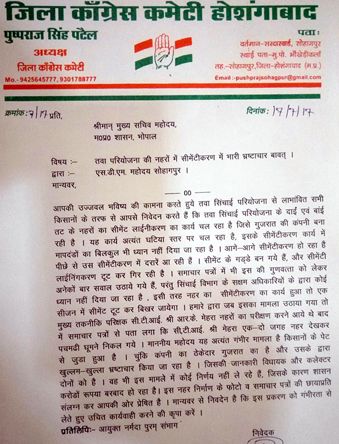 जिला काँग्रेस कमेटी होशंगाबाद
पुष्पराज सिंह पटेल
अध्यक्ष
जिला काँग्रेस कमेटी
Mo.-9425645777, 9301788777
पता :
वर्तमान-सरदारवार्ड, सोहागपुर
स्थाई पता-मु.पो. भौंखेड़ीकलाँ
तह.-सोहागपुर,जिला-होशंगाबाद (म.प्र.)
Email :-pushprajsohagpur@gmail.com
क्रमांक: 7/17 प्रति, दिनांक: 17/7/17
श्रीमान् मुख्य सचिव महोदय,
म0प्र0 शासन, भोपाल
विषय :- तवा परियोजना की नहरों में सीमेंटीकरण में भारी भ्रष्टाचार बावत् ।
द्वारा :- एस.डी.एम. महोदय सोहागपुर ।
मान्यवर,
00
आपकी उज्जवल भविष्य की कामना करते हुये तवा सिंचाई परियोजना से लाभांवित सभी
किसानों के तरफ से आपसे निवेदन करते हैं कि तवा सिंचाई परियोजना के दाईं एवं बाईं
तट के नहरों का सीमेंट लाईनीकरण का कार्य चल रहा है जिसे गुजरात की कंपनी बना
रही है । यह कार्य अत्यंत घटिया स्तर पर चल रहा है, इसके सीमेंटीकरण कार्य में
मापदंडों का बिलकुल भी ध्यान नहीं दिया जा रहा है । आगे-आगे सीमेंटीकरण हो रहा है
पीछे से उस सीमेंटीकरण में दरारें आ रही हैं । सीमेंट के गड्डे बन गये हैं, और सीमेंटी
लाईनिंगकरण टूट कर गिर रही है । समाचार पत्रों में भी इस की गुणवत्ता को लेकर
अनेकों बार सवाल उठाये गये हैं, परंतु सिंचाई विभाग के सक्षम अधिकारियों के द्वारा कोई
ध्यान नहीं दिया जा रहा है , इसी तरह नहर का सीमेंटीकरण का कार्य हुआ तो एक
सीजन में सीमेंट टूट कर बिखर जायेगा । हमारे द्वारा जब इसका मामला उठाया गया तो
मुख्य तकनीकि परीक्षक सी.टी.आई. श्री आर.के. मेहरा नहरों का परीक्षण करने आये थे बाद
में समाचार पत्रों से पता लगा कि सी.टी.आई. श्री मेहरा एक-दो जगह नहर देखकर
पचमढी घूमने निकल गये । माननीय महोदय यह अत्यंत गंभीर मामला है किसानों के पेट
से जुडा हुआ है । चुंकि कंपनी का ठेकेदार गुजरात का है और उसके द्वारा
खुल्लन-खुल्ला भ्रष्टाचार किया जा रहा है । जिसकी जानकारी विधायक और कलेक्टर
दोनों को है । वह भी इस मामले में कोई निर्णय नही ले रहे हैं, जिसके कारण शासन
करोडों रूपया बरबाद हो रही है । इस नहर निर्माण के फोटो व समाचारों की छायाप्रति
संलग्न कर आपकी ओर प्रेषित है । मान्यवर से निवेदन है कि इस प्रकरण को गंभीरता से
लेते हुए उचित कार्यवाही करने की कृपा करें ।
निवेदक
प्रतिलिपिः- आयुक्त नर्मदा पुरम् संभाग